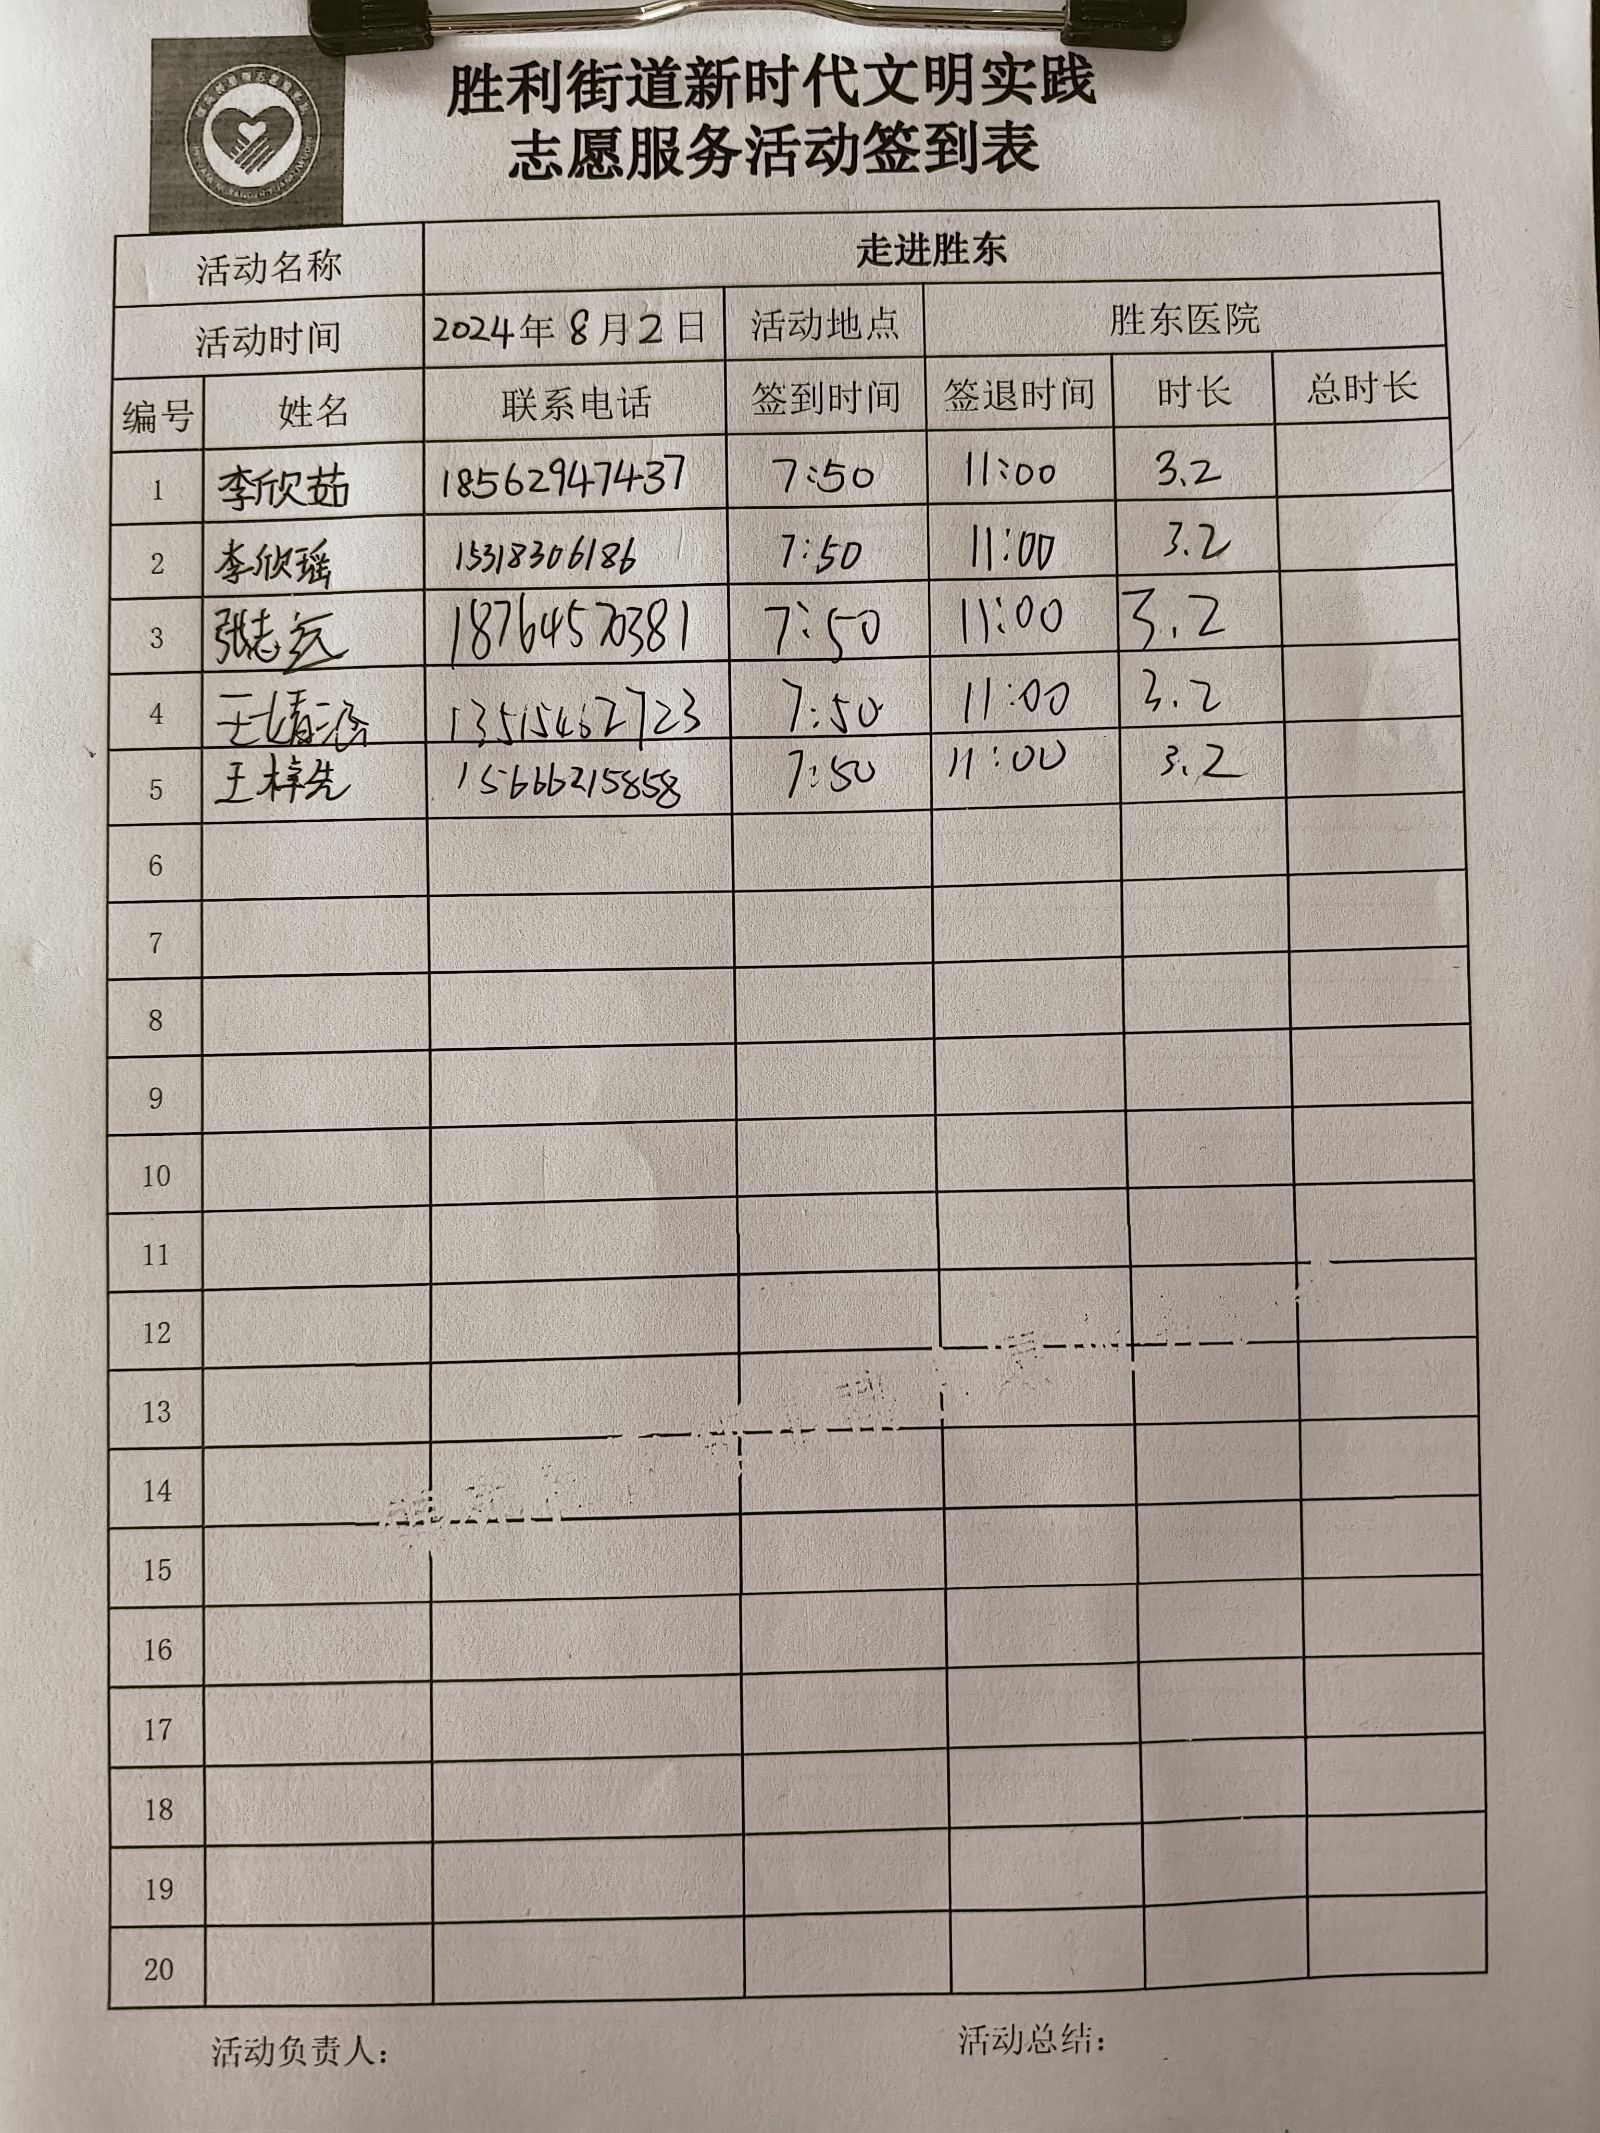 胜利街道新时代文明实践
志愿服务活动签到表
活动名称 走进胜东
活动时间 2024年8月2日 活动地点 胜东医院
编号 姓名 联系电话 签到时间 签退时间 时长 总时长
1 李欣茹 18562947437 7:50 11:00 3.2
2 李欣瑶 15318306186 7:50 11:00 3.2
3 张志远 18764570381 7:50 11:00 3.2
4 王婧涵 13515462723 7:50 11:00 3.2
5 王梓先 15666215858 7:50 11:00 3.2
6
7
8
9
10
11
12
13
14
15
16
17
18
19
20
活动负责人： 活动总结：